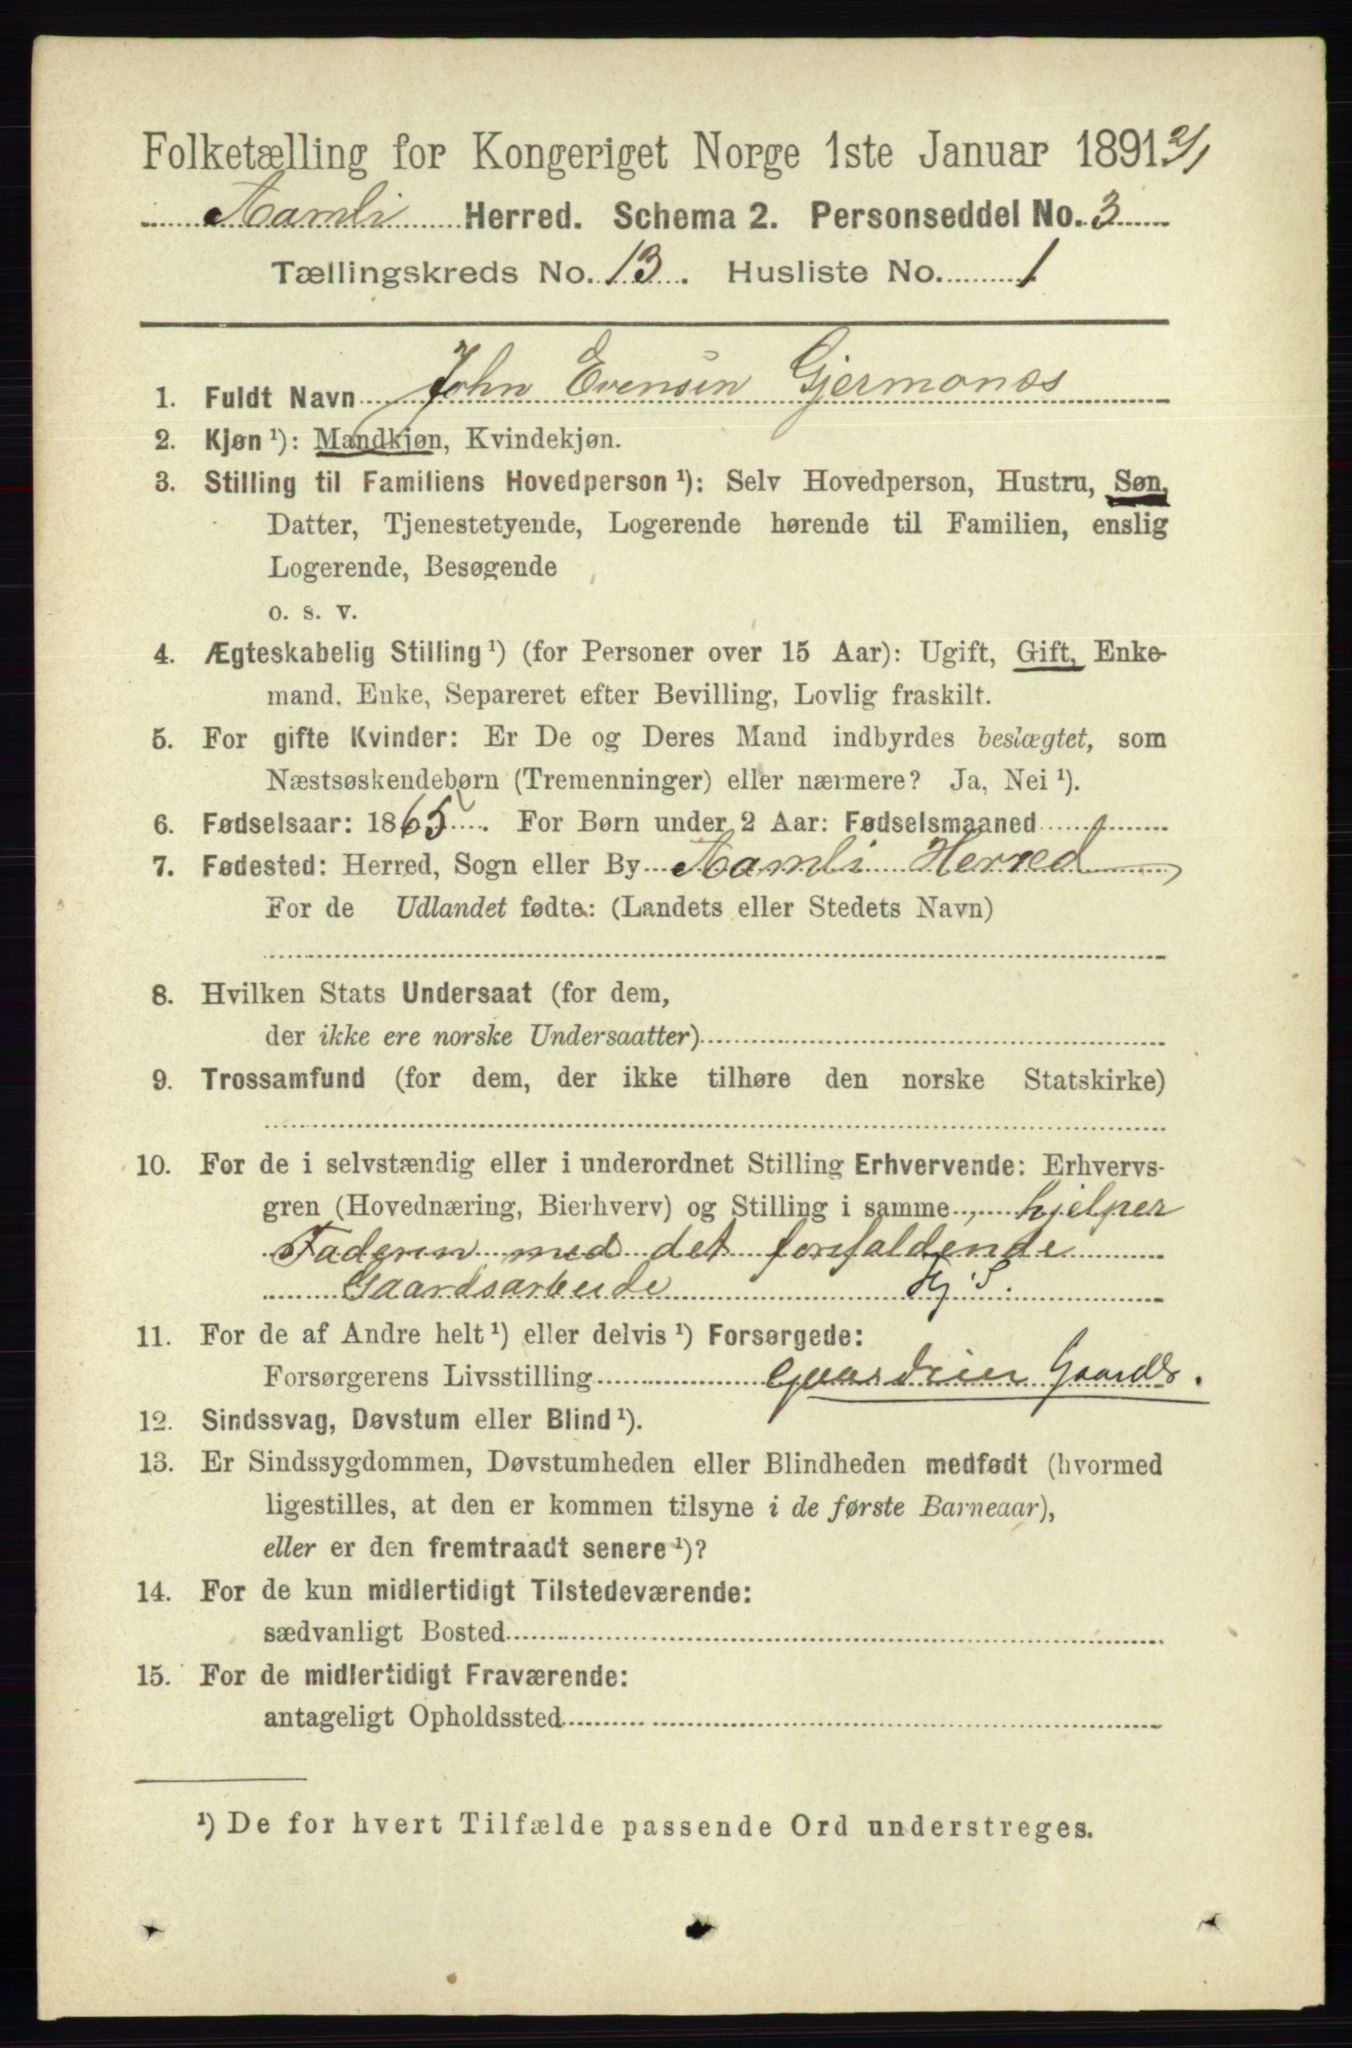 Folketælling for Kongeriget Norge 1ste Januar 1891. 2/1
Aamli Herred. Schema 2. Personseddel No. 3
Tællingskreds No. 13. Husliste No. 1
1. Fuldt Navn John Evensen Gjermonæs
2. Kjøn ¹): Mandkjøn, Kvindekjøn.
3. Stilling til Familiens Hovedperson ¹): Selv Hovedperson, Hustru, Søn,
Datter, Tjenestetyende, Logerende hørende til Familien, enslig
Logerende, Besøgende
o. s. v.
4. Ægteskabelig Stilling ¹) (for Personer over 15 Aar): Ugift, Gift, Enke-
mand, Enke, Separeret efter Bevilling, Lovlig fraskilt.
5. For gifte Kvinder: Er De og Deres Mand indbyrdes beslægtet, som
Næstsøskendebørn (Tremenninger) eller nærmere? Ja, Nei ¹).
6. Fødselsaar: 1865. For Børn under 2 Aar: Fødselsmaaned
7. Fødested: Herred, Sogn eller By Aamli Herred
For de Udlandet fødte: (Landets eller Stedets Navn)
8. Hvilken Stats Undersaat (for dem,
der ikke ere norske Undersaatter)
9. Trossamfund (for dem, der ikke tilhøre den norske Statskirke)
10. For de i selvstændig eller i underordnet Stilling Erhvervende: Erhvervs-
gren (Hovednæring, Bierhverv) og Stilling i samme, hjelper
Faderen med det forefaldende
Gaardsarbeide Hj. S.
11. For de af Andre helt ¹) eller delvis ¹) Forsørgede:
Forsørgerens Livsstilling Gaardb.
12. Sindssvag, Døvstum eller Blind ¹).
13. Er Sindssygdommen, Døvstumheden eller Blindheden medfødt (hvormed
ligestilles, at den er kommen tilsyne i de første Barneaar),
eller er den fremtraadt senere ¹)?
14. For de kun midlertidigt Tilstedeværende:
sædvanligt Bosted
15. For de midlertidigt Fraværende:
antageligt Opholdssted
¹) De for hvert Tilfælde passende Ord understreges.